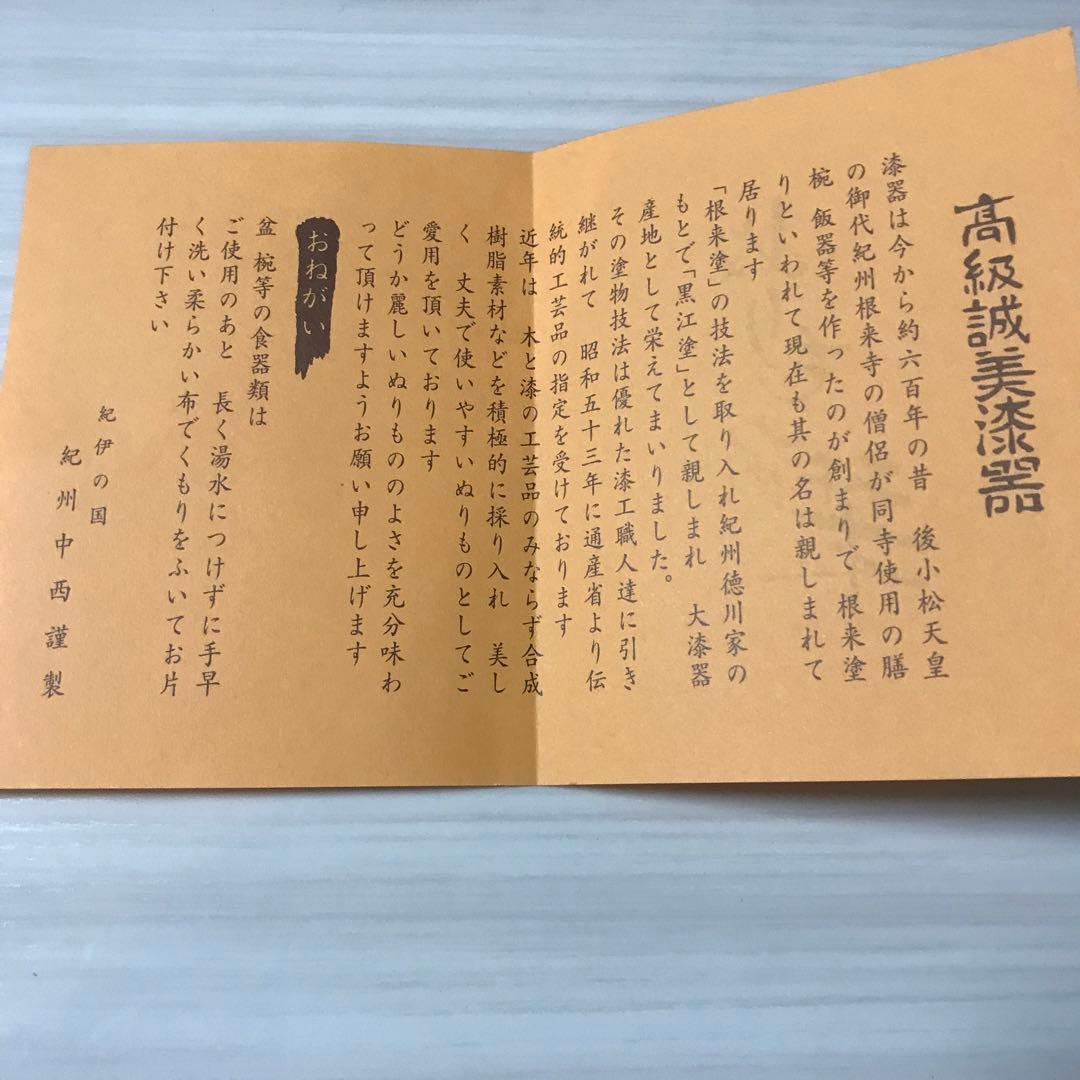 高級誠美漆器
漆器は今から約六百年の昔　後小松天皇
の御代紀州根来寺の僧侶が同寺使用の膳
椀　飯器等を作ったのが創まりで　根来塗
りといわれて現在も其の名は親しまれて
居ります
「根来塗」の技法を取り入れ紀州徳川家の
もとで「黒江塗」として親しまれ　大漆器
産地として栄えてまいりました。
その塗物技法は優れた漆工職人達に引き
継がれて　昭和五十三年に通産省より伝
統的工芸品の指定を受けております
近年は　木と漆の工芸品のみならず合成
樹脂素材などを積極的に採り入れ　美し
く　丈夫で使いやすいぬりものとしてご
愛用を頂いております
どうか麗しいぬりもののよさを充分味わ
って頂けますようお願い申し上げます
おねがい
盆　椀等の食器類は
ご使用のあと　長く湯水につけずに手早
く洗い柔らかい布でくもりをふいてお片
付け下さい
紀伊の国
紀州中西謹製